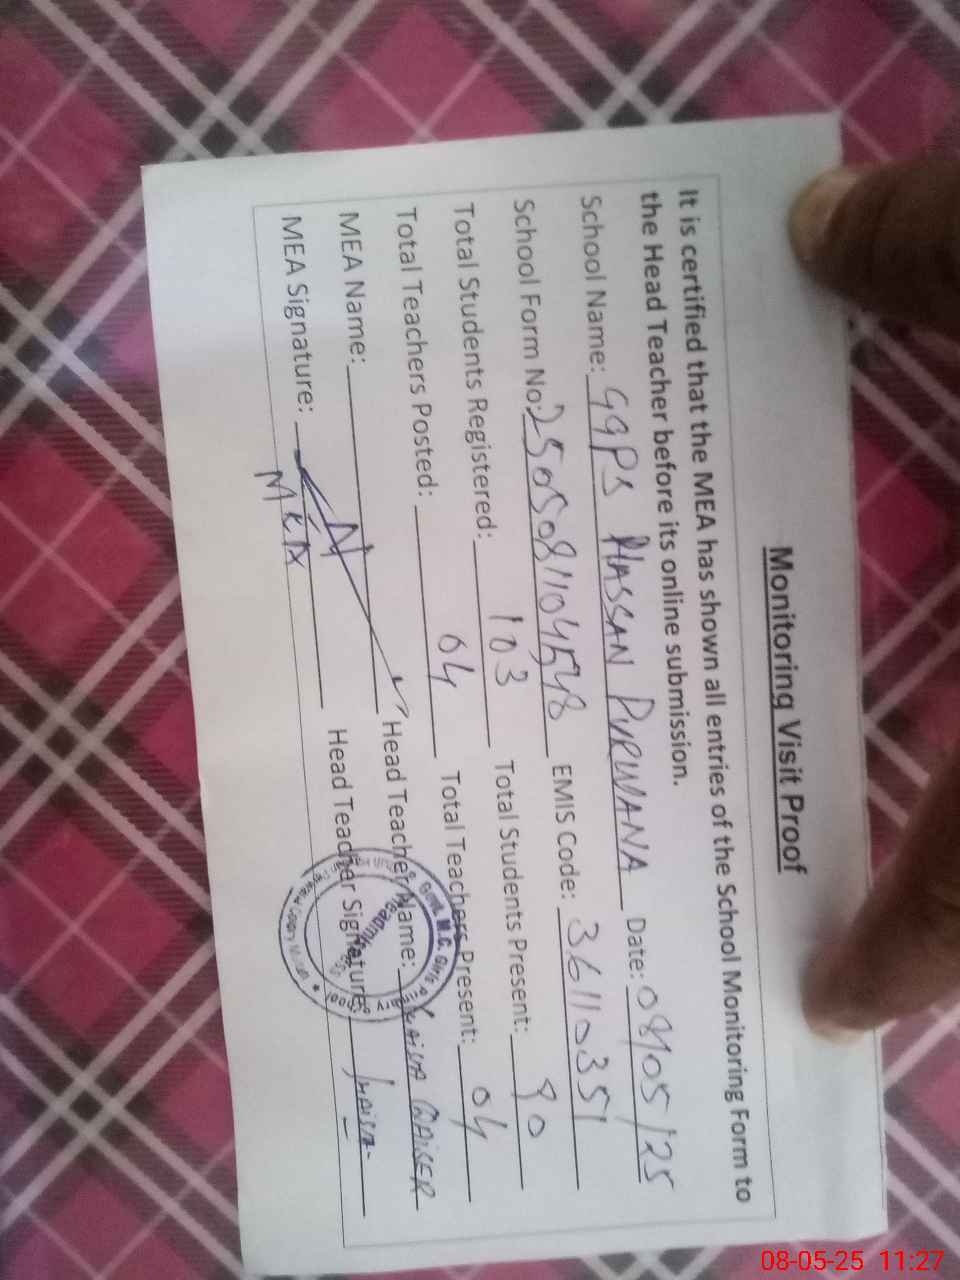 Monitoring Visit Proof
It is certified that the MEA has shown all entries of the School Monitoring Form to
the Head Teacher before its online submission.
School Name: GGPS HASSAN PURWANA Date: 08/05/25
School Form No: 25050811104548 EMIS Code: 36110351
Total Students Registered: 103 Total Students Present: 90
Total Teachers Posted: 04 Total Teachers Present: 04
MEA Name: Head Teacher Name: QAISER
MEA Signature: Head Teacher Signature:
Govt. M.C. Girls
08-05-25 11:27